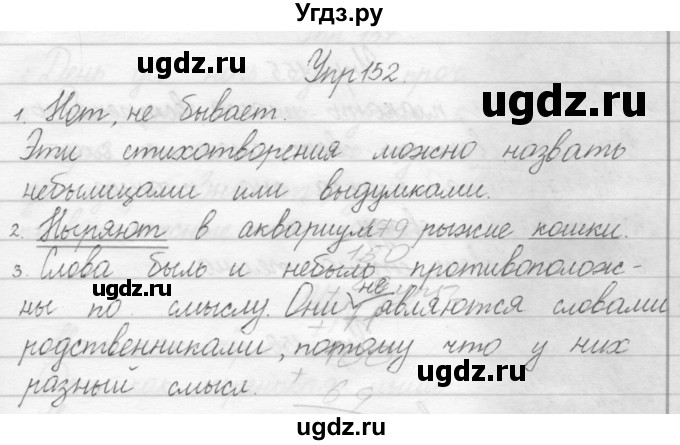 Угдз.ру
ugdz.ru
Упр 152.
ugdz.ru
1. Нет, не бывает.
ugdz.ru
Эти стихотворения можно назвать
небылицами или выдумками.
2. Ныряют в аквариум рыжие кошки.
ugdz.ru
3. Слова быль и небыль противополож-
не
ны по смыслу. Они являются словами
родственниками, потому что у них
разный смысл.
ugdz.ru
ugdz.ru